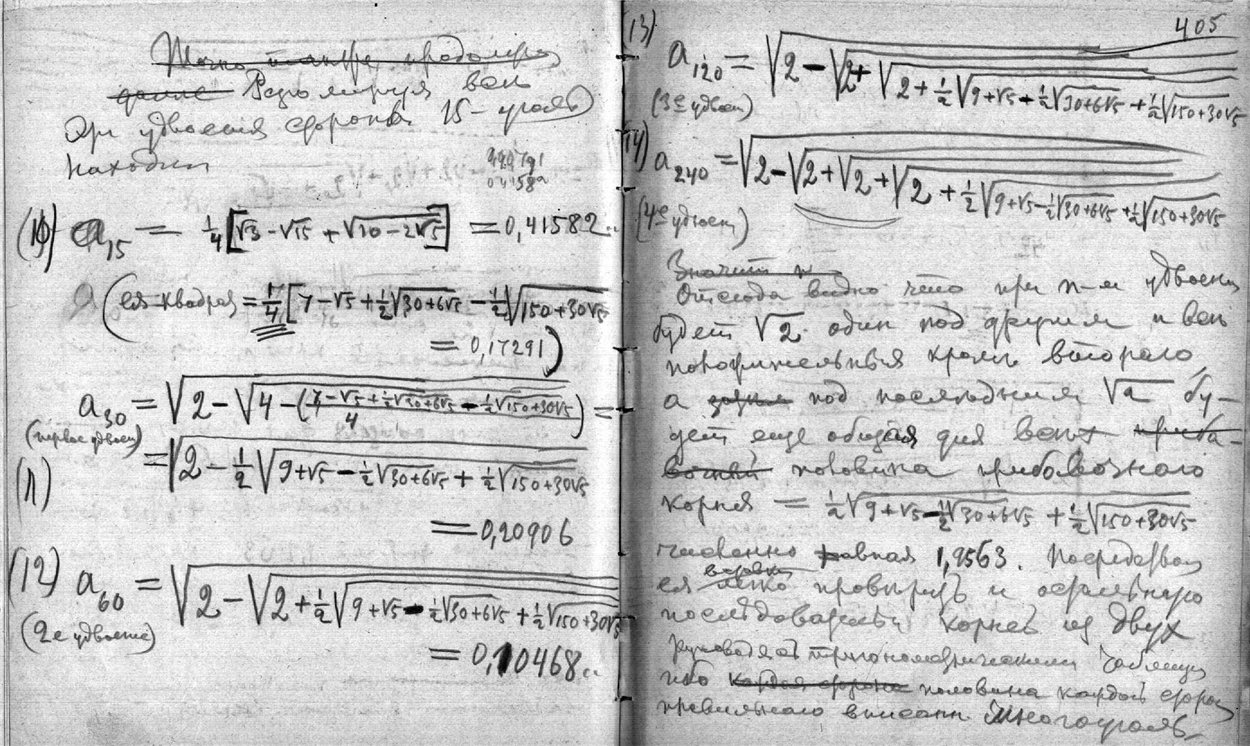 При удвоении стороны 15-угольн
находим
(10) a₁₅ = ¼[√3 − √15 + √(10 − 2√5)] = 0,41582..
(ея квадрат = ¼[7 − √5 + ½√(30+6√5) − ½√(150+30√5)
= 0,17291)
a₃₀ = √(2 − √(4 − (7 − √5 + ½√(30+6√5) − ½√(150+30√5))/4)) =
(первое удвоен)
(11) = √(2 − ½√(9+√5 − ½√(30+6√5) + ½√(150+30√5)))
= 0,20906
(12) a₆₀ = √(2 − √(2 + ½√(9+√5 − ½√(30+6√5) + ½√(150+30√5))))
(2е удвоение)
= 0,10468..
405
13) a₁₂₀ = √(2 − √(2 + √(2 + ½√(9+√5 − ½√(30+6√5) + ½√(150+30√5)))))
(3е удвоен)
14) a₂₄₀ = √(2 − √(2 + √(2 + √(2 + ½√(9+√5 − ½√(30+6√5) + ½√(150+30√5))))))
(4е удвоен)
Значит
Отсюда видно что при n-м удвоении
будет √2 один под другим и все
положительныя кроме второго
а под последним √2 бу-
дет еще общая для всех
половина
корня = ½√(9+√5 − ½√(30+6√5) + ½√(150+30√5))
численно равная 1,9563. Посредством
ея легко проверить и остальную
последовательн корней из двух
тригонометрическими таблиц
ибо каждая сторона половина каждой сторон
правильного вписанн многоуголь